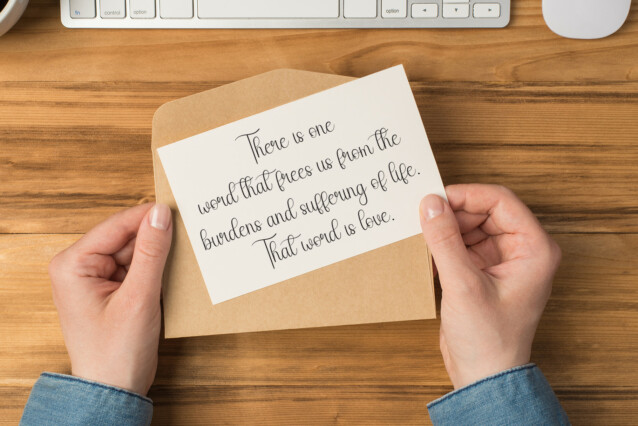 fn
control
option
option
There is one
word that frees us from the
burdens and suffering of life.
That word is love.